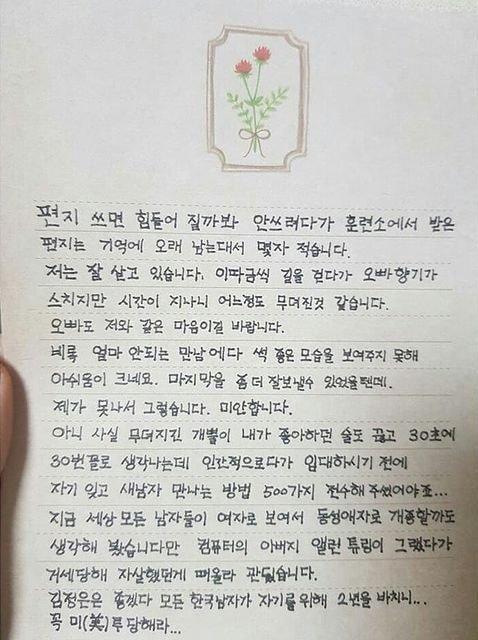 편지 쓰면 힘들어 질까봐 안쓰려다가 훈련소에서 받은
편지는 기억에 오래 남는대서 몇자 적습니다.
저는 잘 살고 있습니다. 이따금씩 길을 걷다가 오빠향기가
스치지만 시간이 지나니 어느정도 무뎌진것 같습니다.
오빠도 저와 같은 마음이길 바랍니다.
비록 얼마 안되는 만남에다 썩 좋은 모습을 보여주지 못해
아쉬움이 크네요. 마지막을 좀 더 잘보낼수 있었을텐데.
제가 못나서 그렇습니다. 미안합니다.
아니 사실 무뎌지긴 개뿔이 내가 좋아하던 술도 끊고 30초에
30번꼴로 생각나는데 인간적으로다가 입대하시기 전에
자기 잊고 새남자 만나는 방법 500가지 전수해 주셨어야죠...
지금 세상 모든 남자들이 여자로 보여서 동성애자로 개종할까도
생각해 봤습니다만 컴퓨터의 아버지 앨런 튜링이 그랬다가
거세당해 자살했던게 떠올라 관뒀습니다.
김정은은 좋겠다 모든 한국남자가 자기를위해 2년을 바치니...
꼭 미(美)투 당해라...